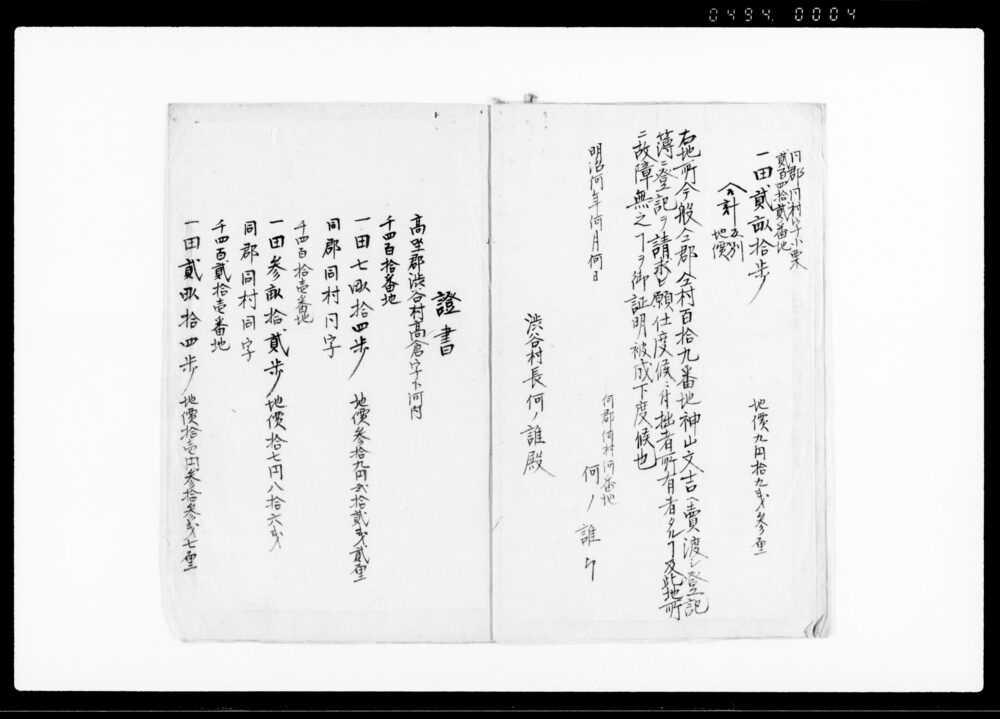 0494. 0004
仝郡仝村字小栗
貳百四拾貳番地
一田貳畝拾歩 地價九円拾九戔参厘
合計 反別
地價
右地所今般仝郡仝村百拾九番地神山文吉ヘ賣渡シ登記
簿ニ登記ヲ請求出願仕度候ニ付拙者所有者タルヿ及此地所
ニ故障無之ヿヲ御証明被成下度候也
明治何年何月何日
何郡何村何番地
何ノ誰 印
渋谷村長何ノ誰殿
證書
高坐郡渋谷村高倉字下河内
千四百拾番地
一田七畝拾四歩 地價参拾九円弐拾貳戔貳厘
同郡同村同字
千四百拾壱番地
一田参畝拾貳歩 地價拾七円八拾六戔
同郡同村同字
千四百貳拾壱番地
一田貳畝拾四歩 地價拾壱円参拾参戔七厘